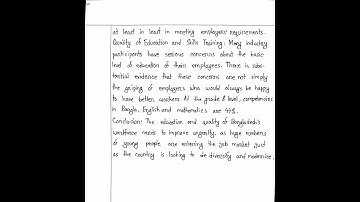 at least in least in meeting employees' requirements.
Quality of Education and Skills Training: Many industry
participants have serious concerns about the basic
level of education of their employees. There is subs-
tantial evidence that these concerns are not simply
the griping of employers who would always be happy
to have better workers. At the grade 8 level, competencies
in Bangla, English and mathematics are 44%,
Conclusion: The education and quality of Bangladesh's
workforce needs to improve urgently, as huge numbers
of young people are entering the job market just
as the country is looking to diversify and modernize.